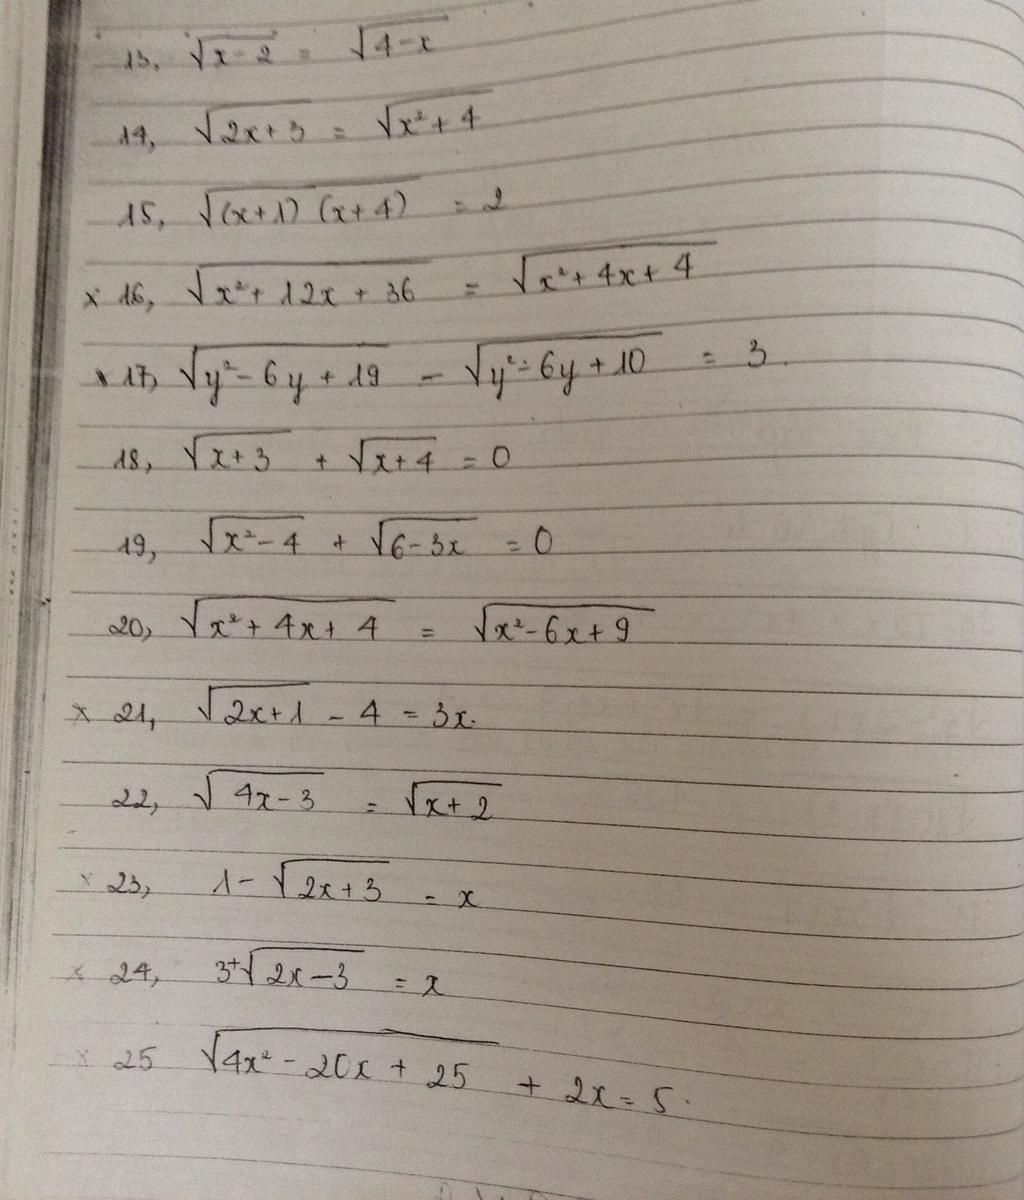 13, √x-2 = √4-x
14, √2x+3 = √x²+4
15, √(x+1) (x+4) = 2
x 16, √x²+12x+36 = √x²+4x+4
x 17, √y²-6y+19 - √y²-6y+10 = 3
18, √x+3 + √x+4 = 0
19, √x²-4 + √6-3x = 0
20, √x²+4x+4 = √x²-6x+9
x 21, √2x+1 - 4 = 3x.
22, √4x-3 = √x+2
x 23, 1-√2x+3 = x
x 24, 3+√2x-3 = x
x 25 √4x²-20x+25 + 2x = 5.